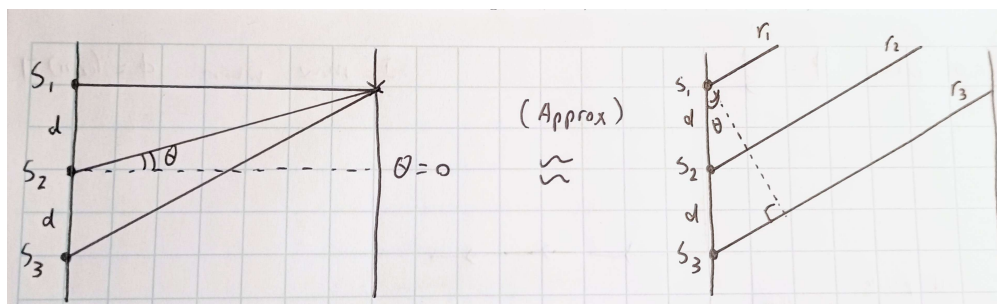 S₁
d
S₂
d
S₃
θ
θ = 0
(Approx)
≈
r₁
r₂
r₃
S₁
d
θ
S₂
d
S₃